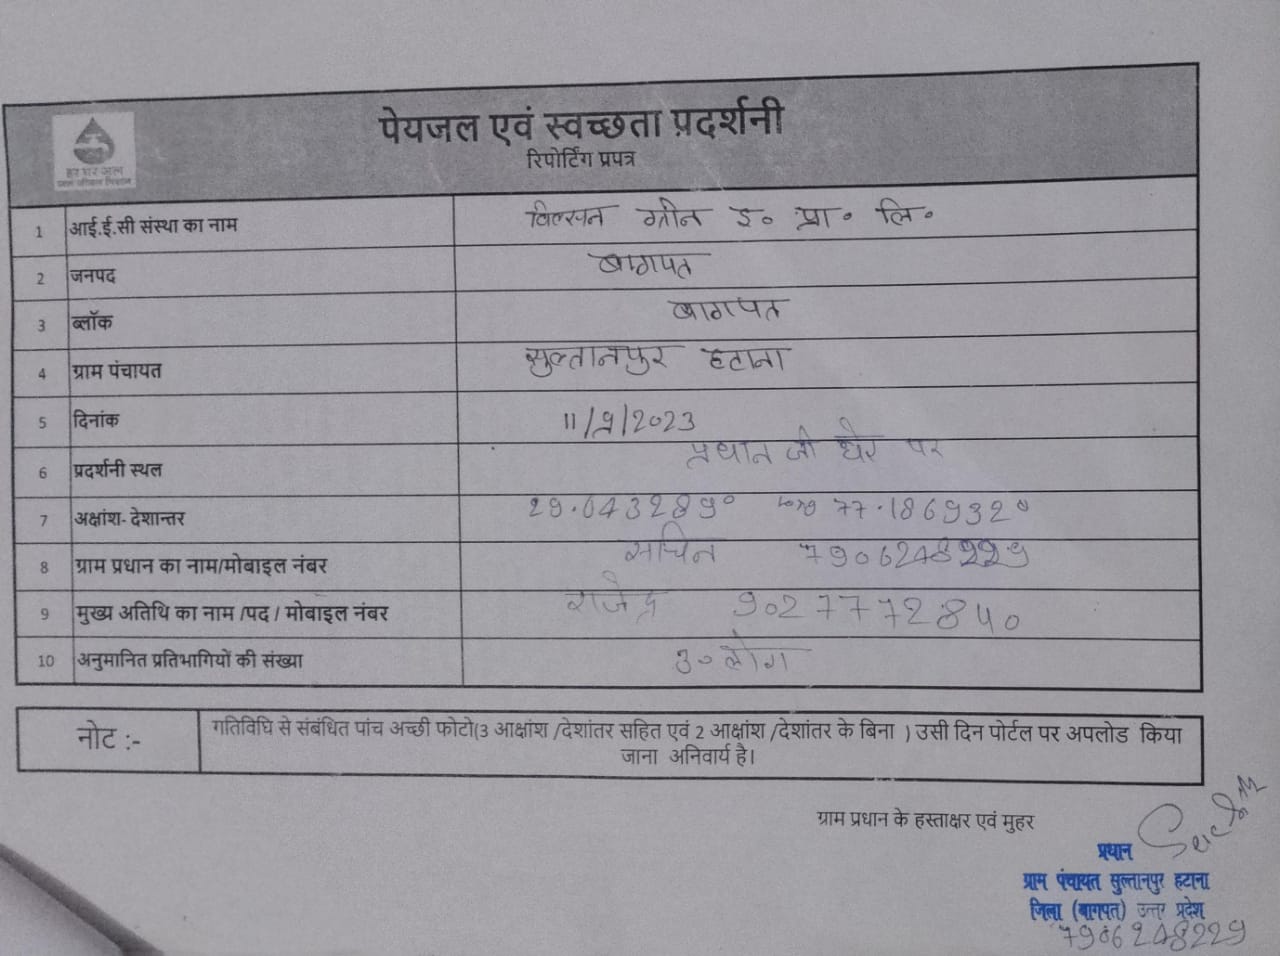 हर घर जल
जल जीवन मिशन
पेयजल एवं स्वच्छता प्रदर्शनी
रिपोर्टिंग प्रपत्र
1 आई.ई.सी संस्था का नाम विल्सन ग्रीन इ० प्रा० लि०
2 जनपद बागपत
3 ब्लॉक बागपत
4 ग्राम पंचायत सुल्तानपुर हटाना
5 दिनांक 11/9/2023
6 प्रदर्शनी स्थल प्रधान जी घेर पर
7 अक्षांश- देशान्तर 29.043289° 77.186932°
8 ग्राम प्रधान का नाम/मोबाइल नंबर सचिन 7906248229
9 मुख्य अतिथि का नाम /पद / मोबाइल नंबर राजेंद्र 9027772840
10 अनुमानित प्रतिभागियों की संख्या 30 लोग
नोट :- गतिविधि से संबंधित पांच अच्छी फोटो(3 आक्षांश /देशांतर सहित एवं 2 आक्षांश /देशांतर के बिना ) उसी दिन पोर्टल पर अपलोड किया
जाना अनिवार्य है।
ग्राम प्रधान के हस्ताक्षर एवं मुहर
प्रधान
ग्राम पंचायत सुल्तानपुर हटाना
जिला (बागपत) उत्तर प्रदेश
7906248229